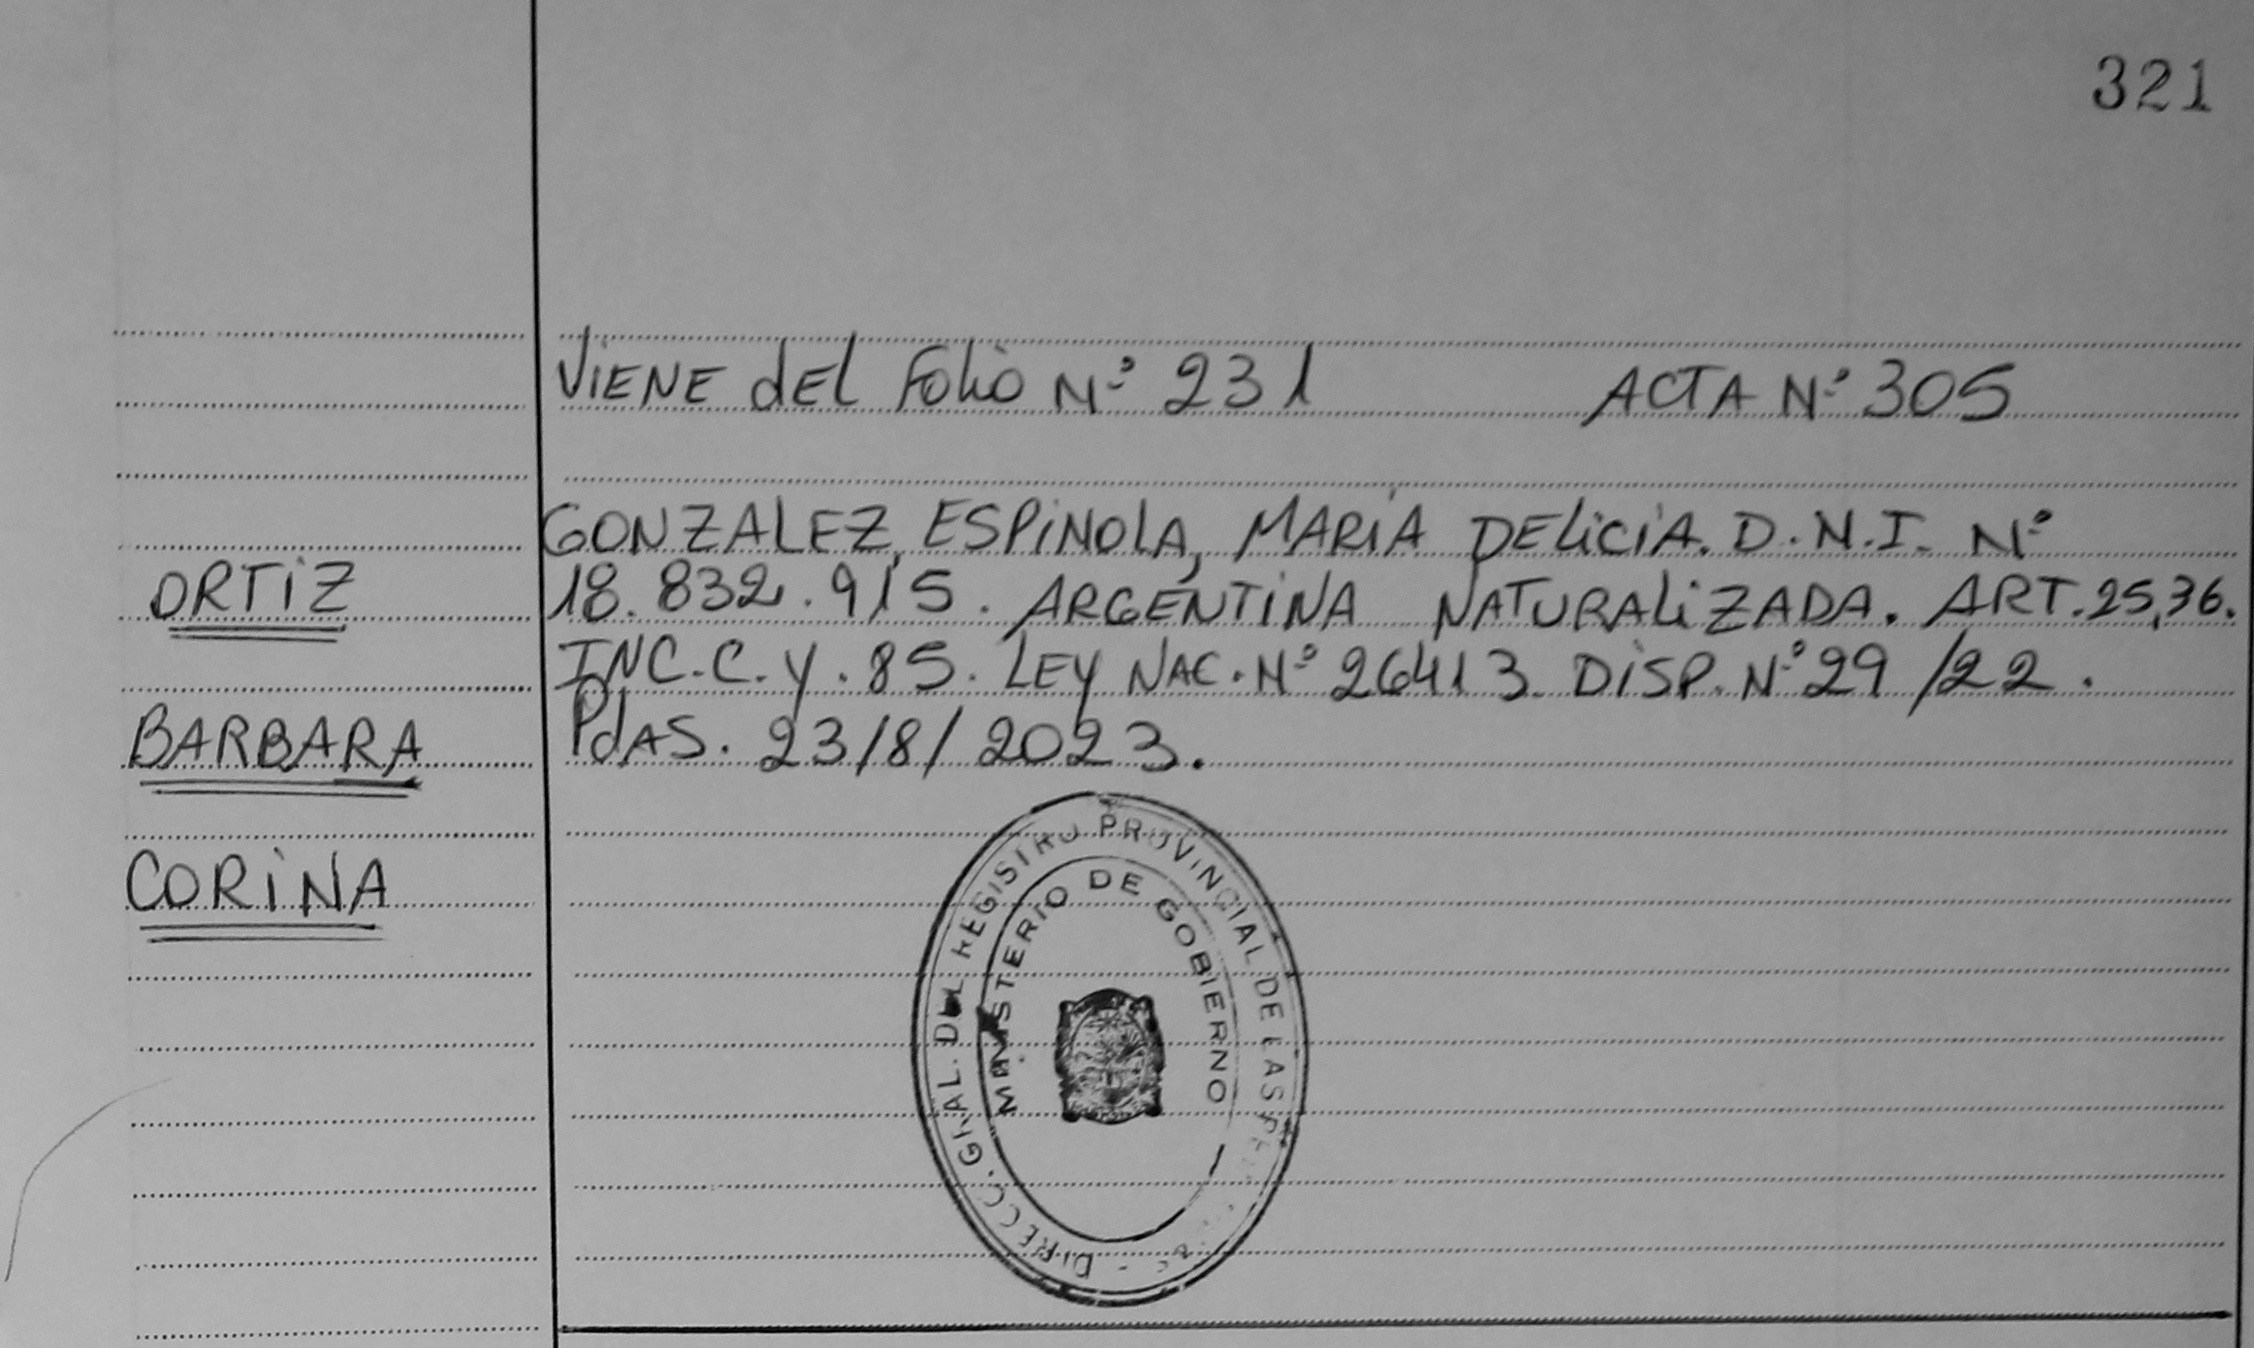 321
VIENE dEL Folio Nº 231 ACTA Nº 305
GONZALEZ, ESPiNOLA, MARÍA DELiCiA. D.N.I. Nº
18.832.915. ARGENTiNA NATURALiZADA. ART. 25,36.
INC. C. y. 85. LEY NAC. Nº 26413. DiSP. Nº 29/22.
PdAS. 23/8/2023.
ORTiZ
BARBARA
CORiNA
DIRECC. GRAL. DEL REGISTRO PROVINCIAL DE LAS
MINISTERIO DE GOBIERNO